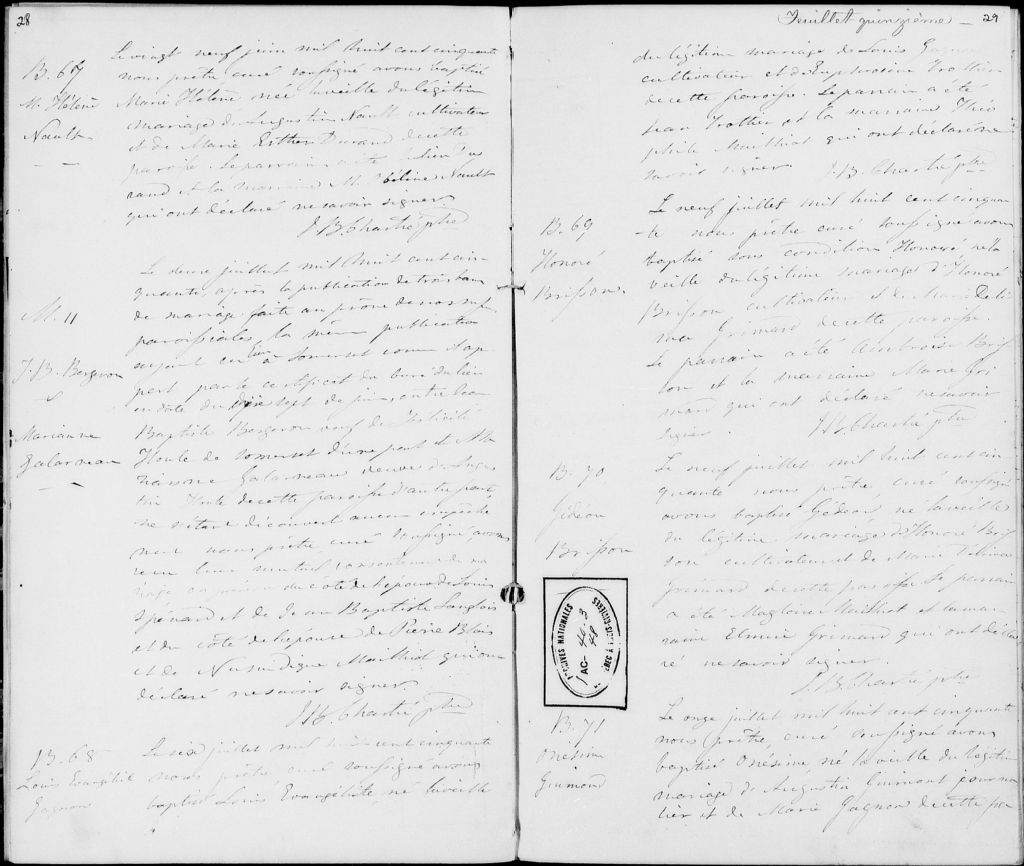 28
B. 67
M. Hélène
Nault
Le vingt neuf juin mil huit cent cinquante
nous prêtre curé soussigné avons baptisé
Marie Hélène née la veille du légitime
mariage d'Augustin Nault cultivateur
et de Marie Esther Durand de cette
paroisse. Le parrain a été Julien Du
rand et la marraine M. Nault
qui ont déclaré ne savoir signer.
J. B. Chartié ptre
M. 11
J. B. Bergeron
&
Marianne
Galarneau
Le deux juillet mil huit cent cin
quante, après la publication de trois bans
de mariage faite au prône de nos messes
paroissiales, la même publication
ayant eu lieu à Somerset comme il ap
pert par le certificat du curé du lieu
en date du dix sept de juin, entre Jean
Baptiste Bergeron veuf de Félicité
Houle de Somerset d'une part et Ma
rianne Galarneau veuve d'Augus
tin Houle de cette paroisse d'autre part,
ne s'étant découvert aucun empêche
ment nous prêtre curé soussigné avons
reçu leur mutuel consentement de ma
riage en présence du côté de l'époux de Louis
Spénard et de Jean Baptiste Langlois
et du côté de l'épouse de Pierre Blais
et de Mailhiot qui ont
déclaré ne savoir signer.
J. B. Chartié ptre
B. 68
Louis Evangéliste
Gagnon
Le six juillet mil huit cent cinquante
nous prêtre curé soussigné avons
baptisé Louis Evangéliste, né la veille
Feuillet quinzième — 29
du légitime mariage de Louis Gagnon
cultivateur et de Euphrosine Trottier
de cette paroisse. Le parrain a été
Jean Trottier et la marraine Théo
phile Mailhiot qui ont déclaré ne
savoir signer.
J. B. Chartié ptre
B. 69
Honoré
Brisson.
Le neuf juillet mil huit cent cinquan
te nous prêtre curé soussigné avons
baptisé sous condition Honoré né la
veille du légitime mariage d'Honoré
Brisson cultivateur et de Marie Deli
ma Grimard de cette paroisse.
Le parrain a été Ambroise Bris
son et la marraine Marie Gri
mard qui ont déclaré ne savoir
signer.
J. B. Chartié ptre
B. 70
Gédéon
Brisson
Le neuf juillet mil huit cent cin
quante nous prêtre curé soussigné
avons baptisé Gédéon né la veille
du légitime mariage d'Honoré Bris
son cultivateur et de Marie Délima
Grimard de cette paroisse Le parrain
a été Magloire Mailhiot et la mar
raine Elmire Grimard qui ont décla
ré ne savoir signer.
J. B. Chartié ptre
ARCHIVES NATIONALES
AC-40-3
48
QUÉBEC À TROIS-RIVIÈRES
B. 71
Onésime
Guimond
Le onze juillet mil huit cent cinquante
nous prêtre, curé soussigné avons
baptisé Onésime né la veille du légitime
mariage d'Augustin Guimont journa
lier et de Marie Gagnon de cette pa